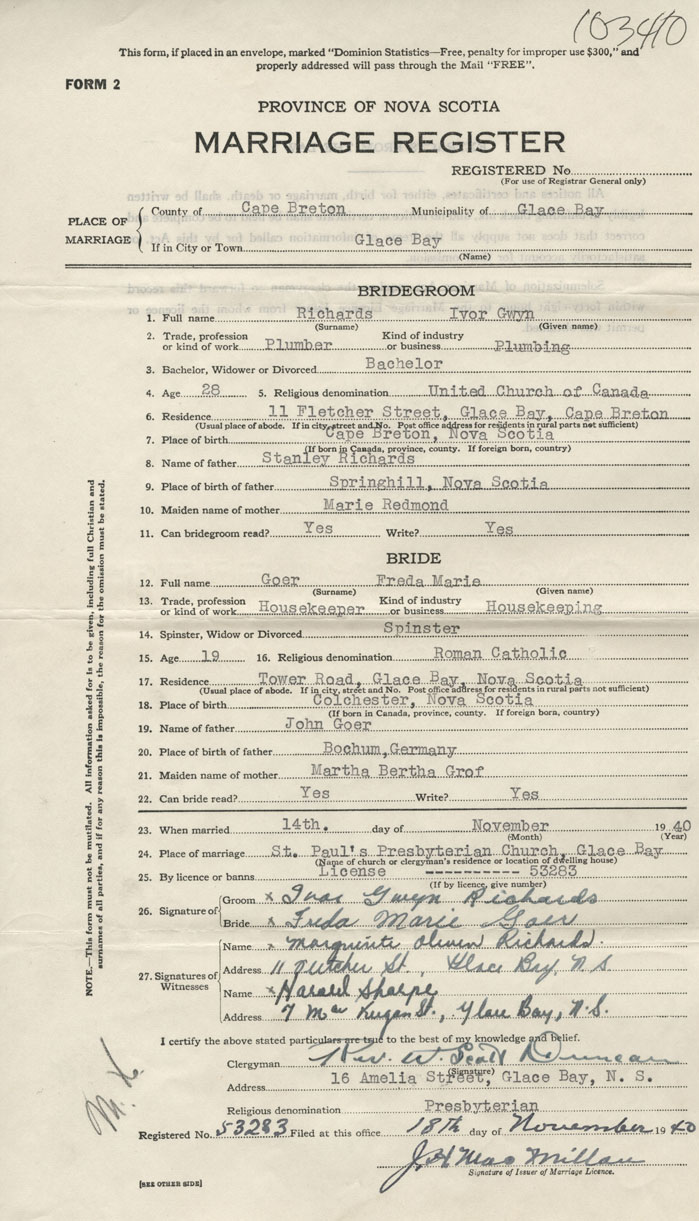 103410
This form, if placed in an envelope, marked "Dominion Statistics—Free, penalty for improper use $300," and
properly addressed will pass through the Mail "FREE".
FORM 2
PROVINCE OF NOVA SCOTIA
MARRIAGE REGISTER
REGISTERED No.
(For use of Registrar General only)
PLACE OF MARRIAGE
County of Cape Breton Municipality of Glace Bay
If in City or Town Glace Bay
(Name)
BRIDEGROOM
1. Full name Richards Ivor Gwyn
(Surname) (Given name)
2. Trade, profession or kind of work Plumber Kind of industry or business Plumbing
3. Bachelor, Widower or Divorced Bachelor
4. Age 28 5. Religious denomination United Church of Canada
6. Residence 11 Fletcher Street, Glace Bay, Cape Breton
(Usual place of abode. If in city, street and No. Post office address for residents in rural parts not sufficient)
7. Place of birth Cape Breton, Nova Scotia
(If born in Canada, province, county. If foreign born, country)
8. Name of father Stanley Richards
9. Place of birth of father Springhill, Nova Scotia
10. Maiden name of mother Marie Redmond
11. Can bridegroom read? Yes Write? Yes
BRIDE
12. Full name Goer Freda Marie
(Surname) (Given name)
13. Trade, profession or kind of work Housekeeper Kind of industry or business Housekeeping
14. Spinster, Widow or Divorced Spinster
15. Age 19 16. Religious denomination Roman Catholic
17. Residence Tower Road, Glace Bay, Nova Scotia
(Usual place of abode. If in city, street and No. Post office address for residents in rural parts not sufficient)
18. Place of birth Colchester, Nova Scotia
(If born in Canada, province, county. If foreign born, country)
19. Name of father John Goer
20. Place of birth of father Bochum, Germany
21. Maiden name of mother Martha Bertha Grof
22. Can bride read? Yes Write? Yes
23. When married 14th. day of November 1940
(Month) (Year)
24. Place of marriage St. Paul's Presbyterian Church, Glace Bay
(Name of church or clergyman's residence or location of dwelling house)
25. By licence or banns License ---------- 53283
(If by licence, give number)
26. Signature of
Groom x Ivor Gwyn Richards
Bride x Freda Marie Goer
27. Signatures of Witnesses
Name x Marguerite Richards.
Address 11 Fletcher St., Glace Bay, N.S.
Name x Harold Sharpe
Address 7 St., Glace Bay, N.S.
I certify the above stated particulars are true to the best of my knowledge and belief.
Clergyman Rev. W. Scott Duncan
(Signature)
Address 16 Amelia Street, Glace Bay, N. S.
Religious denomination Presbyterian
Registered No. 53283 Filed at this office 18th day of November 1940
J. H. MacMillan
Signature of Issuer of Marriage Licence.
[SEE OTHER SIDE]
NOTE.—This form must not be mutilated. All information asked for is to be given, including full Christian and
surnames of all parties, and if for any reason this is impossible, the reason for the omission must be stated.